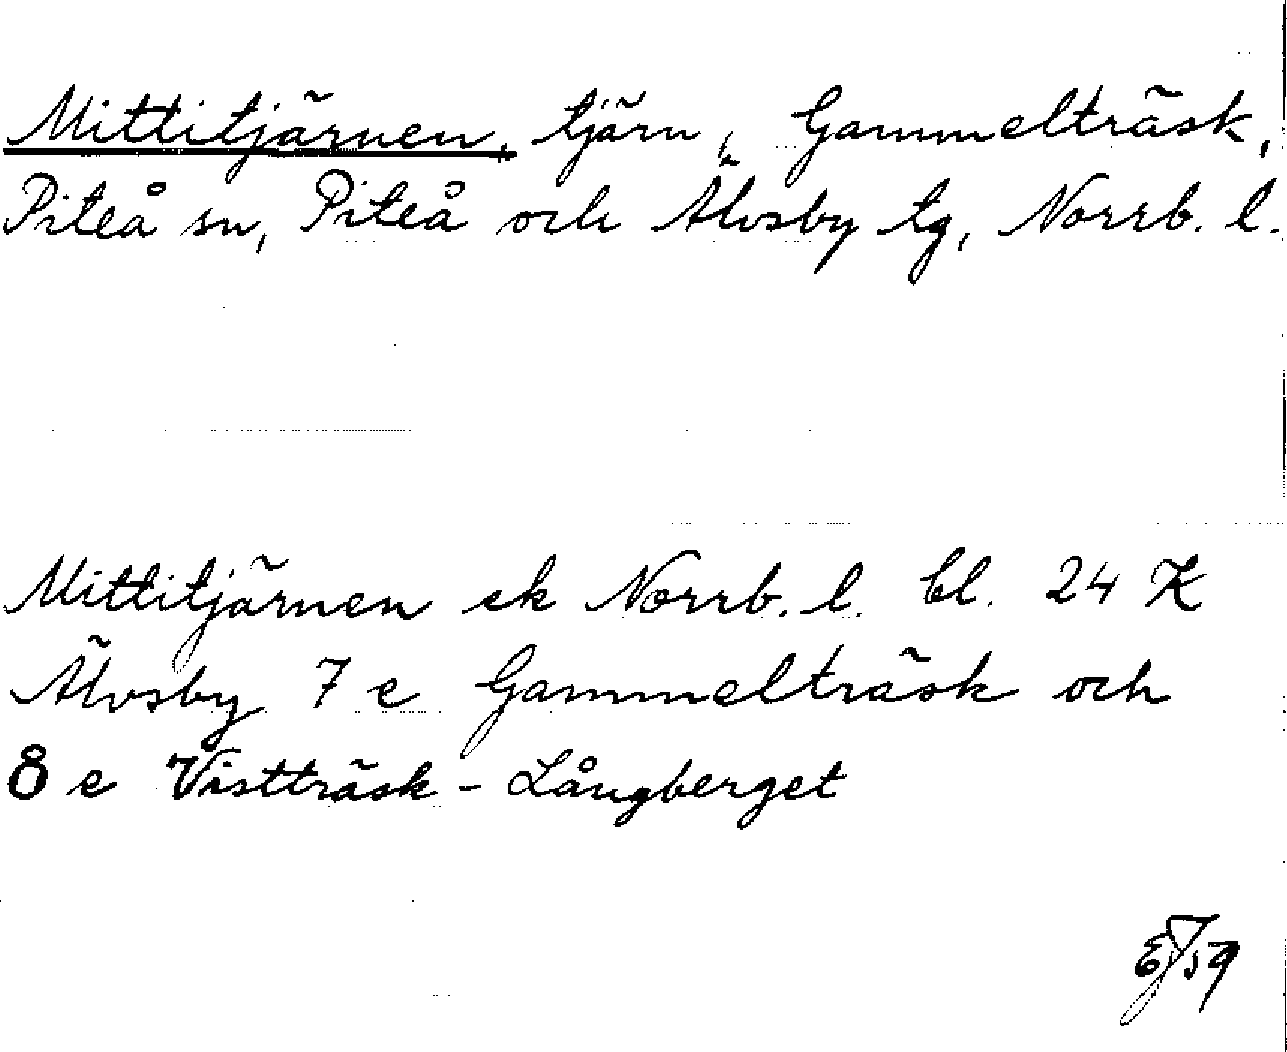 Mittitjärnen, tjärn, Gammelträsk,
Piteå sn, Piteå och Älvsby tg, Norrb. l.
Mittitjärnen ek Norrb. l. bl. 24 K
Älvsby 7 e Gammelträsk och
8 e Vistträsk - Långberget